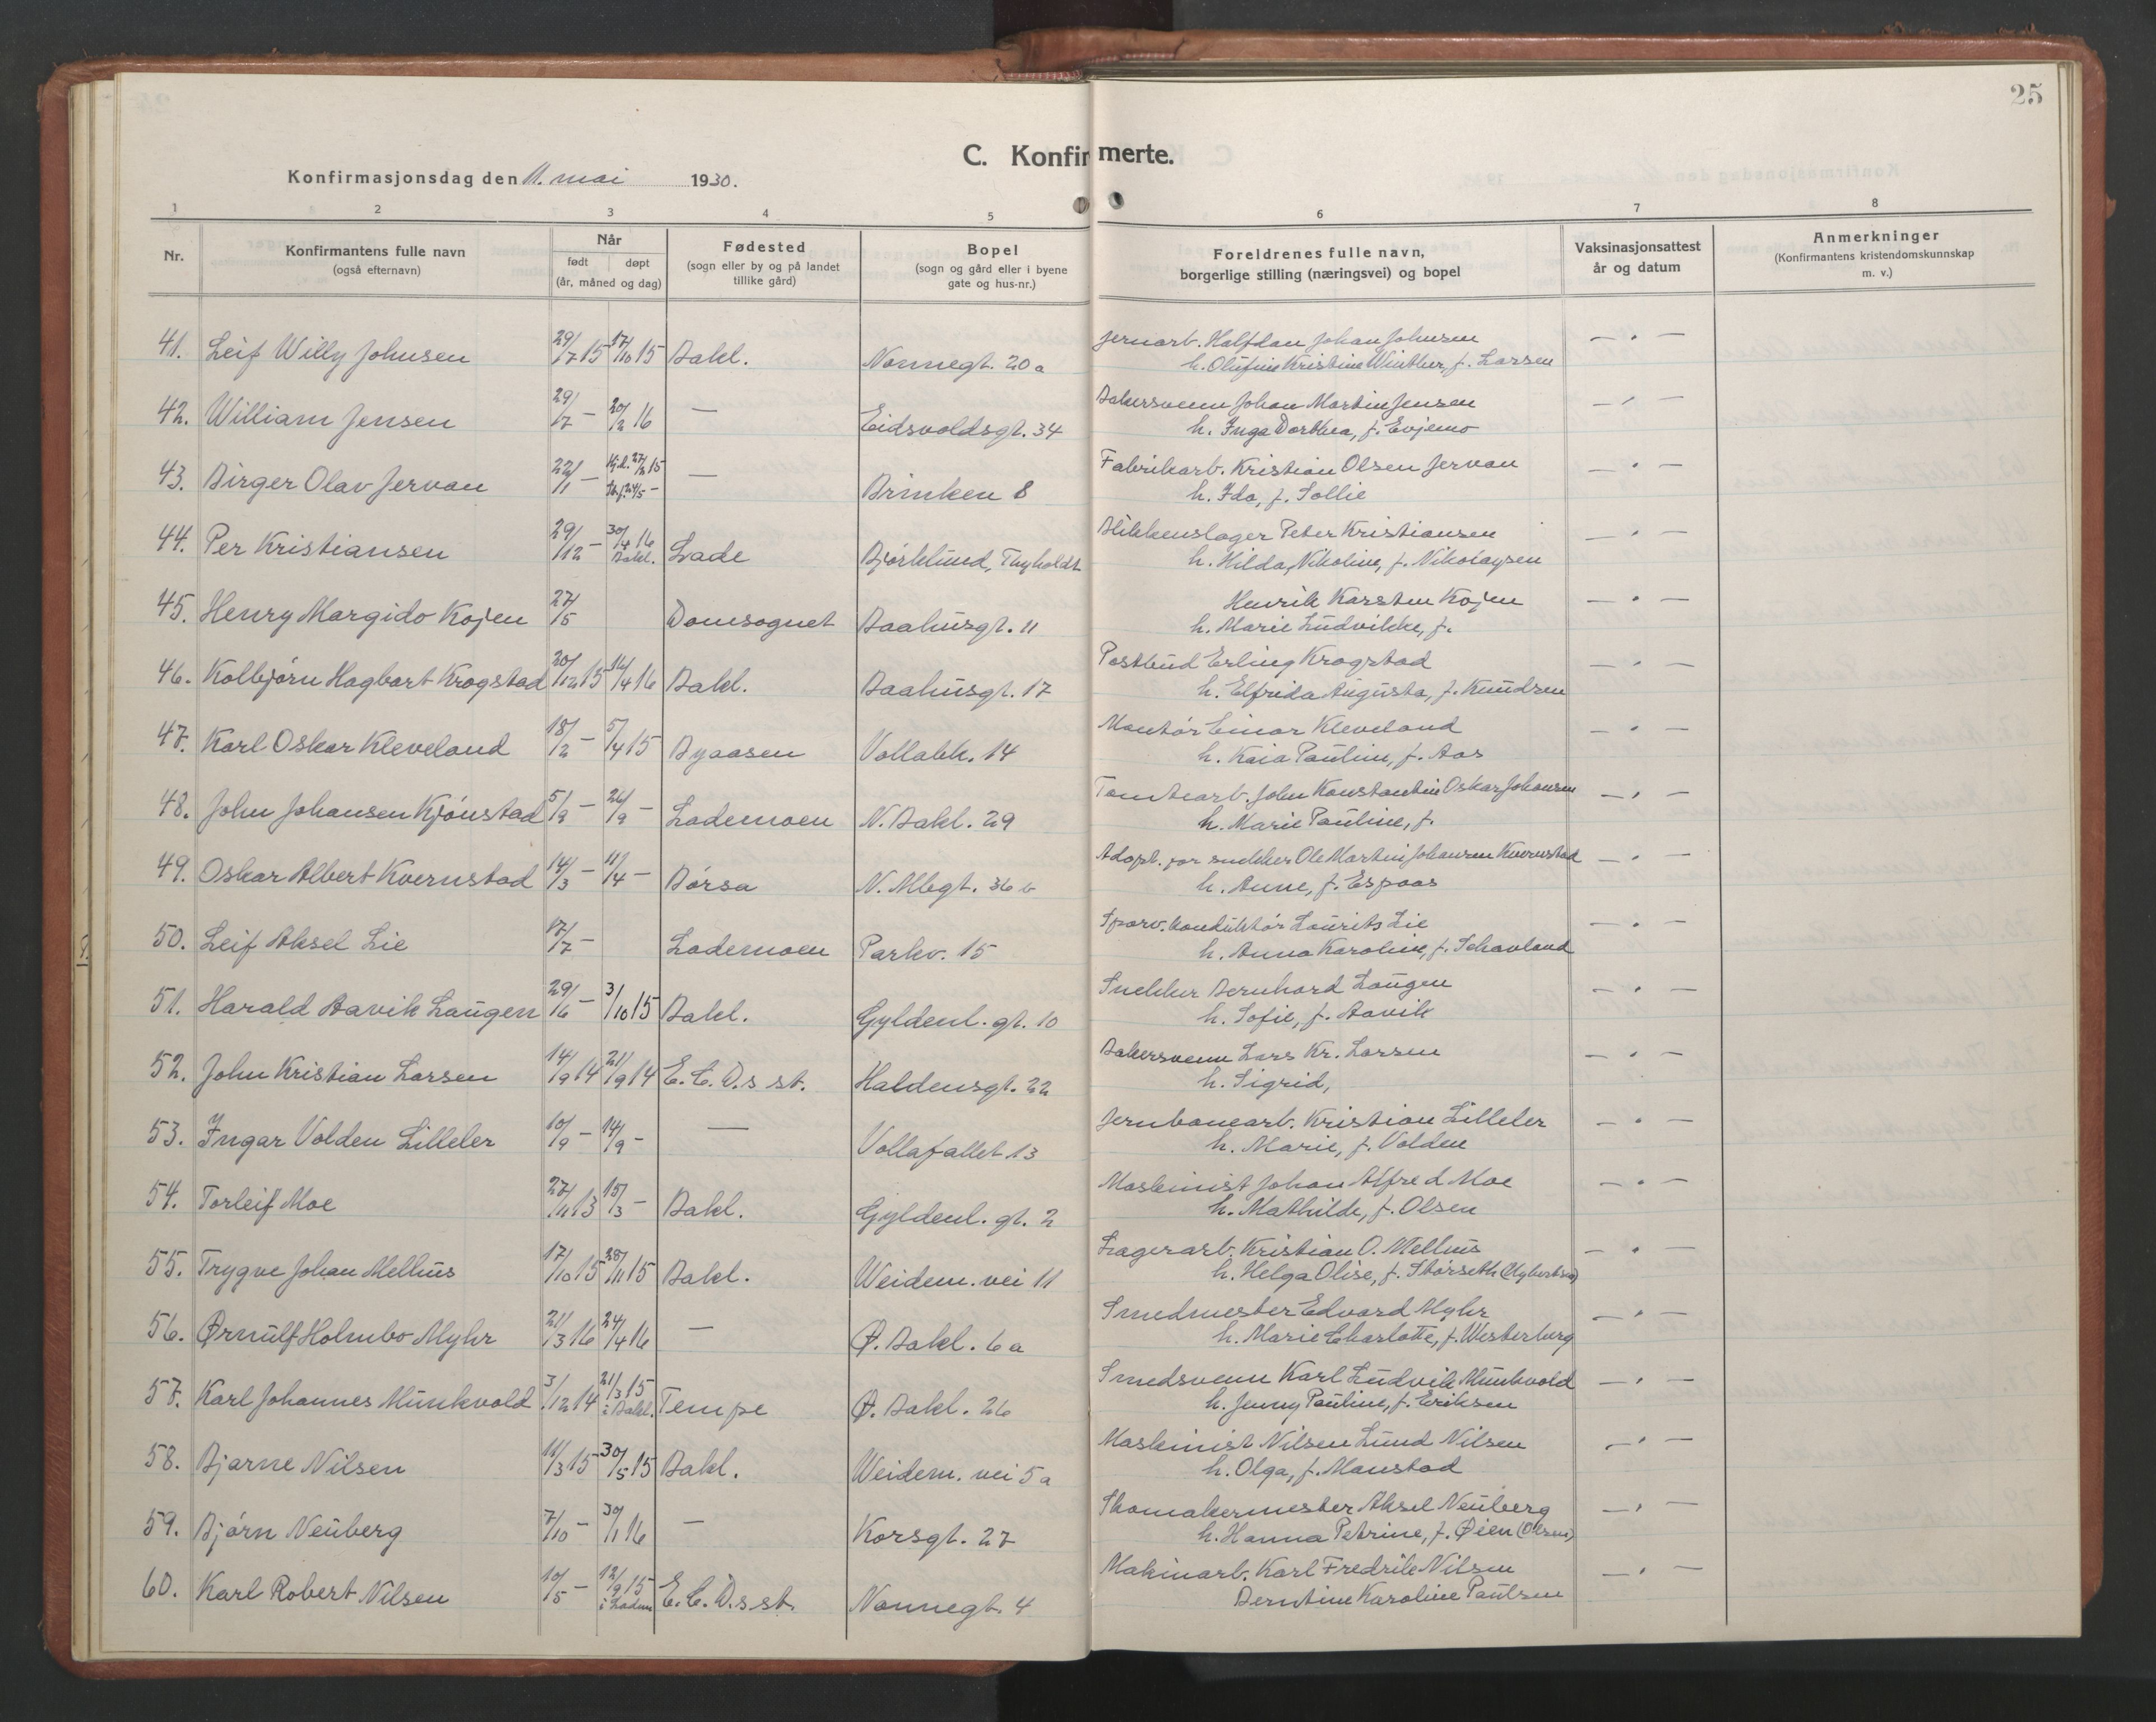 25
C. Konfirmerte.
Konfirmasjonsdag den 11. mai 1930.
1 2 3 4 5 6 7 8
Nr. Konfirmantens fulle navn (også efternavn) Når født døpt (år, måned og dag) Fødested (sogn eller by og på landet tillike gård) Bopel (sogn og gård eller i byene gate og hus-nr.) Foreldrenes fulle navn, borgerlige stilling (næringsvei) og bopel Vaksinasjonsattest år og datum Anmerkninger (Konfirmantens kristendomskunnskap m. v.)
41. Leif Willy Johnsen 29/7 15 17/10 15 Bakl. Nonnegt. 20a Jernarb. Halfdan Johan Johnsen — " —
h. Olufine Kristine Winther, f. Larsen
42. William Jensen 29/7 — 20/2 16 — Eidsvoldsgt. 34 Bakersvenn Johan Martin Jensen — " —
h. Inga Dorthea, f. Evjemo
43. Birger Olav Jervan 22/1 — Hj.d. 27/3 15 — Brinken 8 Fabrikarb. Kristian Olsen Jervan — " —
24/5 — h. Ida, f. Sollie
44. Per Kristiansen 29/12 — 30/4 16 Bakl. Lade Bjørklund, Thyholdt Blikkenslager Peter Kristiansen — " —
h. Hilda Nikoline, f. Nikolaysen
45. Henry Margido Kojen 27/5 Domsognet Baahusgt. 11 Henrik Karsten Kojen — " —
h. Marie Ludvikke, f.
46. Kolbjørn Hagbart Krogstad 20/12 15 16/4 16 Bakl. Baahusgt. 17 Postbud Erling Krogstad — " —
h. Elfrida Augusta, f. Knudsen
47. Karl Oskar Kleveland 18/2 — 5/4 15 Byaasen Vollabk. 14 Montør Einar Kleveland — " —
h. Kaia Pauline, f. Aas
48. John Johansen Kjønstad 5/9 — 26/9 — Lademoen N. Bakl. 29 Tomtearb. John Konstantin Oskar Johansen — " —
h. Marie Pauline, f.
49. Oskar Albert Kvernstad 14/3 — 11/4 — Børsa N. Allegt. 36b Adopt. for snekker Ole Martin Johansen Kvernstad — " —
h. Anne, f. Espaas
50. Leif Aksel Lie 17/7 — Lademoen Parkv. 15 Sporv.konduktør Laurits Lie — " —
h. Anna Karoline, f. Schavland
51. Harald Aavik Laugen 29/6 — 3/10 15 Bakl. Gyldenl. gt. 10 Snekker Bernhard Laugen — " —
h. Sofie, f. Aavik
52. John Kristian Larsen 14/9 14 21/9 14 E. C. D.s st. Haldensgt. 22 Bakersvenn Lars Kr. Larsen — " —
h. Sigrid,
53. Ingar Volden Lilleler 10/9 — 14/9 — — Vollafallet 13 Jernbanearb. Kristian Lilleler — " —
h. Marie, f. Volden
54. Torleif Moe 27/11 13 15/3 — Bakl. Gyldenl. gt. 2 Maskinist Johan Alfred Moe — " —
h. Mathilde, f. Olsen
55. Trygve Johan Melhus 17/10 15 28/11 15 Bakl. Weidem. vei 11 Lagerarb. Kristian O. Melhus — " —
h. Helga Olise, f. Størseth
56. Ørnulf Holmbo Myhr 21/3 16 24/4 16 — Ø. Bakl. 6a Smedmester Edvard Myhr — " —
h. Marie Charlotte, f. Westerberg
57. Karl Johannes Munkvold 3/12 14 21/3 15 i Bakl. Tempe Ø. Bakl. 26 Smedsvenn Karl Ludvik Munkvold — " —
h. Jenny Pauline, f. Eriksen
58. Bjarne Nilsen 11/3 15 30/5 15 Bakl. Weidem. vei 5a Maskinist Nilsen Lund Nilsen — " —
h. Olga, f. Manstad
59. Bjørn Neuberg 7/10 — 30/1 16 — Korsgt. 27 Skomakermester Aksel Neuberg — " —
h. Hanna Petrine, f. Øien (Olsen)
60. Karl Robert Nilsen 10/5 — 12/9 15 i Ladem E. C. D.s st. Nonnegt. 4 Makinarb. Karl Fredrik Nilsen — " —
Berntine Karoline Paulsen